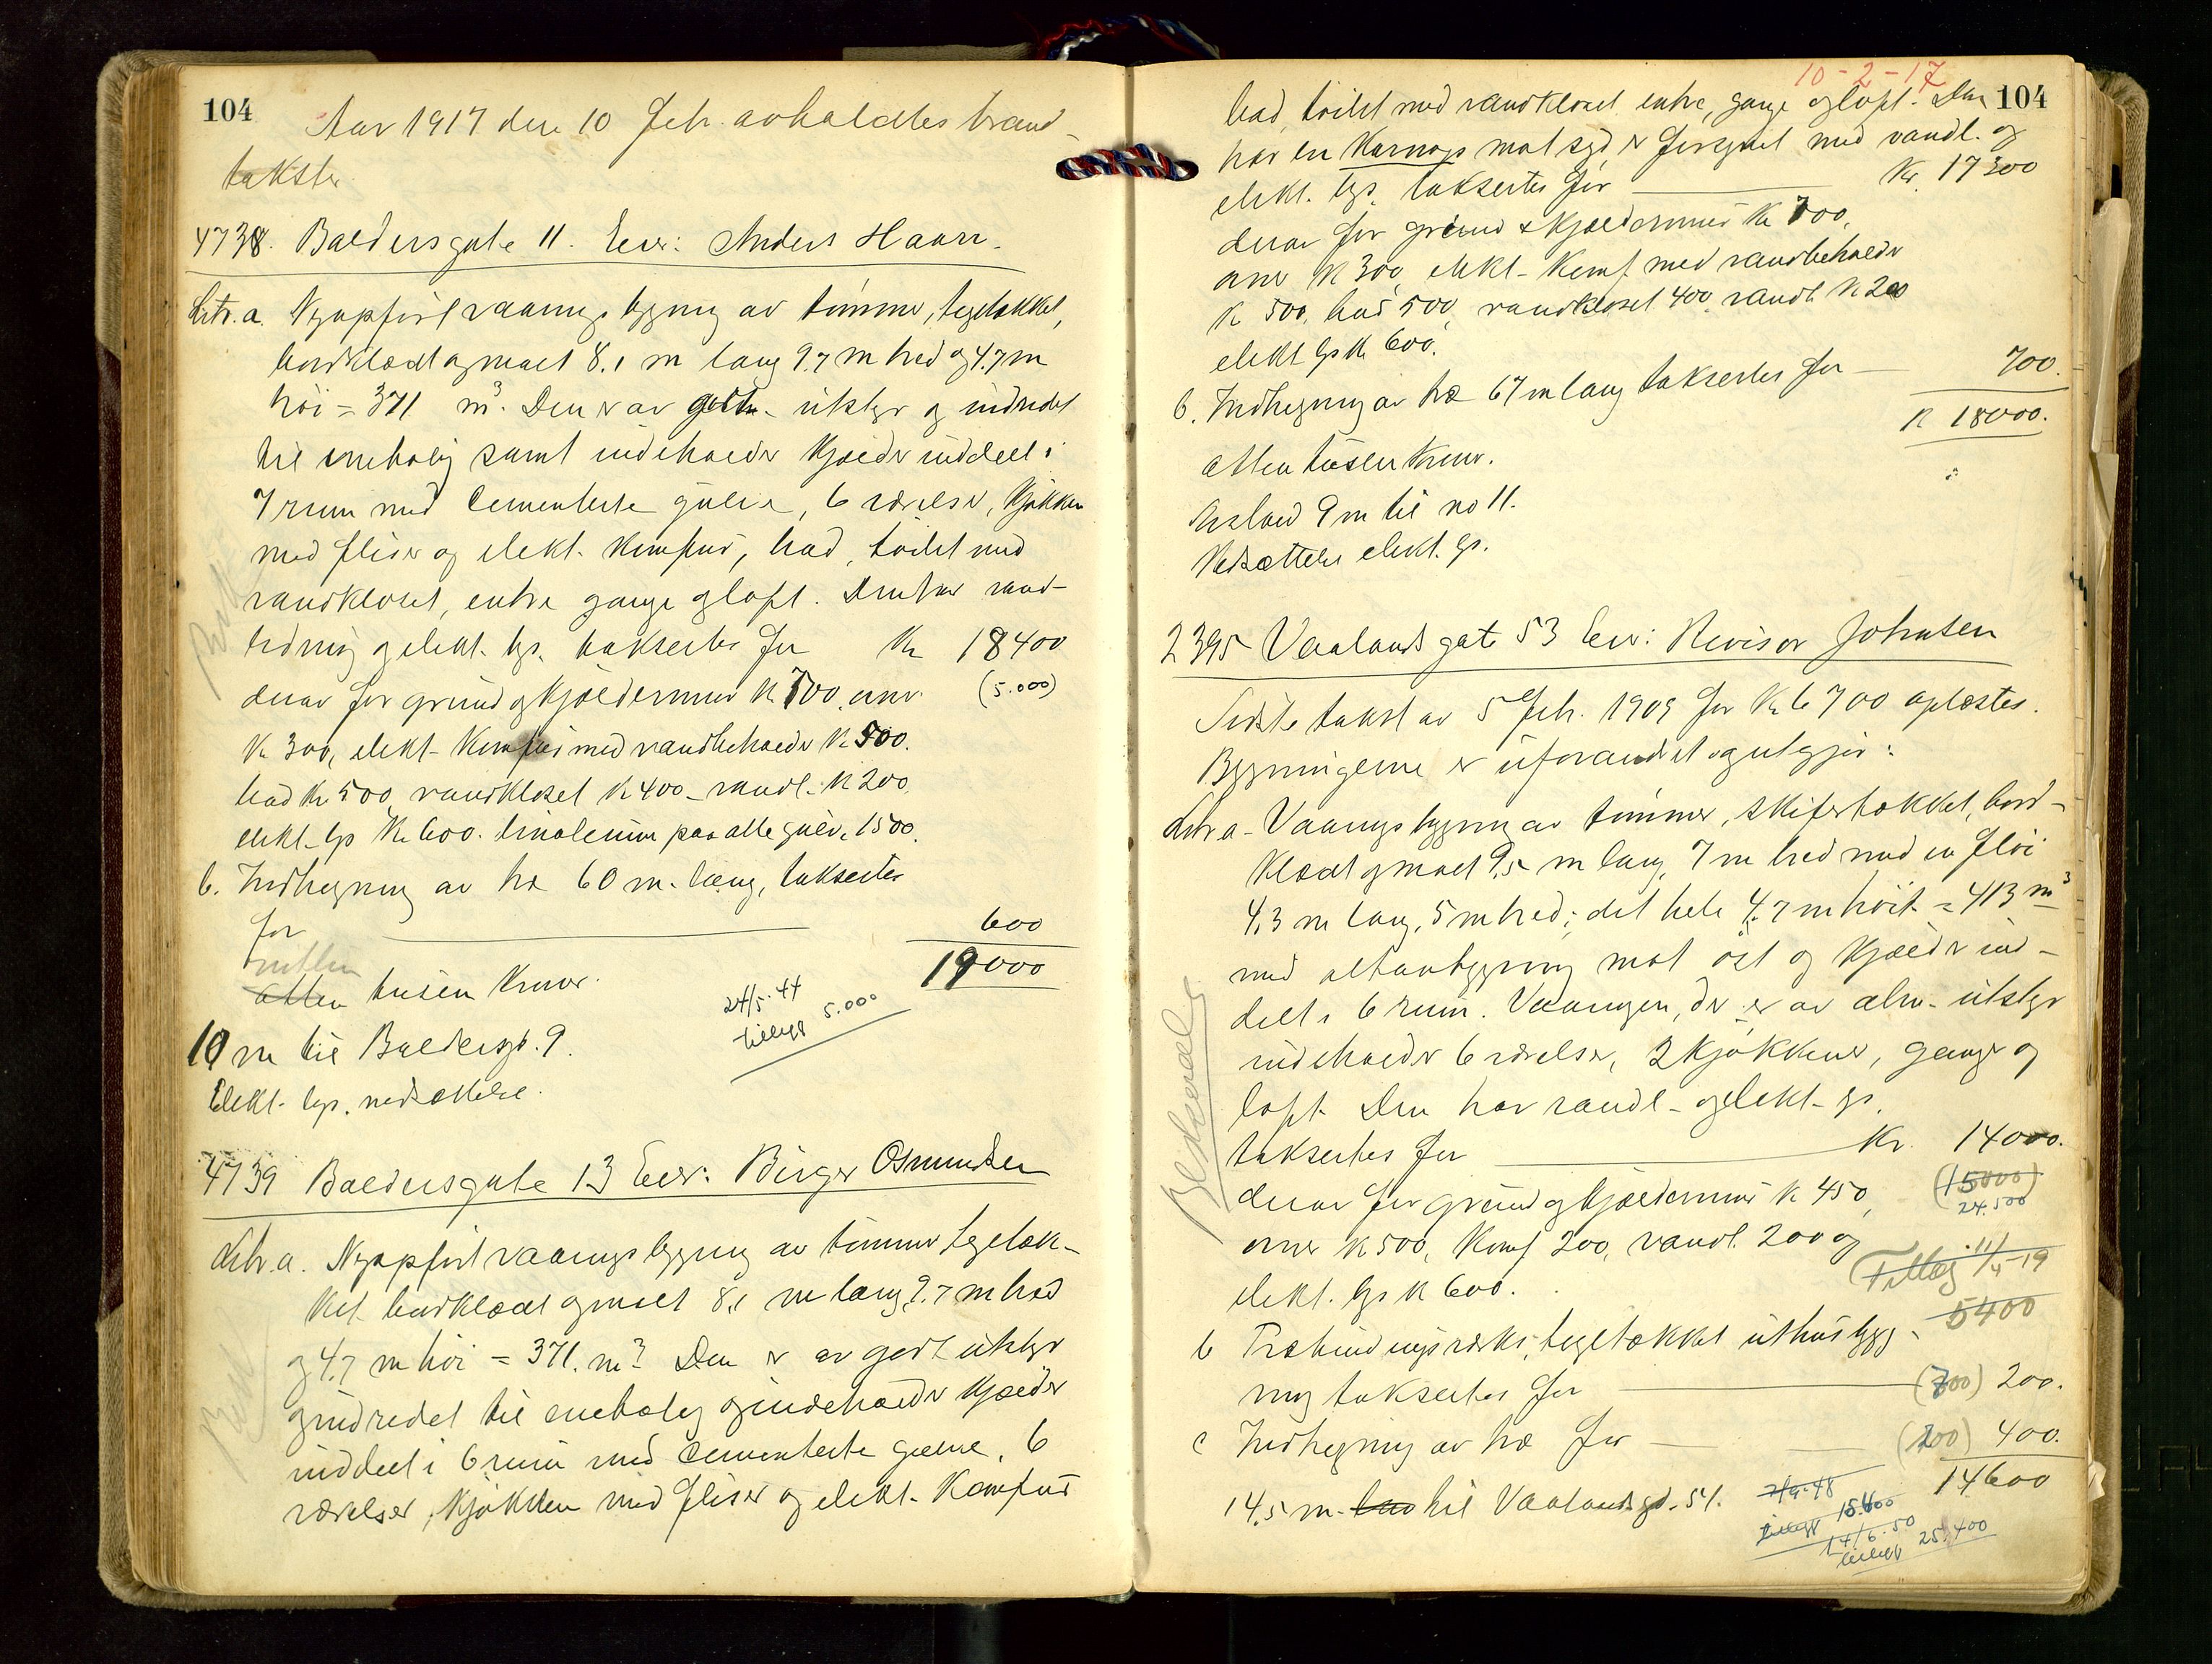 104
Aar 1917 den 10 Feb. avholdtes brand-
takster.
4738. Baldersgate 11. Eier: Anders Haarr.
Litr. a. Nyopført vaaningsbygning av tømmer, tegltækket,
bordklædt og malt 8.1 m lang 9.7 m bred og 4.7 m
høi = 371 m³. Den er av godt utstyr og indredet
til enebolig samt indeholder Kjælder inddeelt i
7 rum med Cementerte gulve, 6 værelser, Kjøkken
med fliser og elekt. Komfur, bad, toilet med
vandkloset, entre gange og loft. Den har vand-
ledning og elekt. lys. taksertes for Kr 18400
derav for grund og kjældermur K. 700, (5.000)
Kr 300, elekt- Komfur med vandbeholder K. 500.
bad Kr 500 vandkloset K 400 - vandl. K 200.
elekt- lys Kr. 600. linoleum paa alle gulve 1500.
b. Indhegning av træ 60 m. lang, taksertes
for 600
nitten 19000
atten tusen Kroner.
24/5.44
tillegg 5.000
10 m til Baldersgt. 9.
Elekt- lys. nedsættelse.
4739 Baldersgate 13 Eier: Birger Osmundsen
Litr. a. Nyopført vaaningsbygning av tømmer tegltæk-
ket bordklædt og malt 8.1 m lang, 9.7 m bred
og 4.7 m høi = 371. m³. Den er av godt utstyr
og indredet til enebolig og indeholder Kjælder
inddeelt i 6 rum med Cementerte gulve, 6
værelser, Kjøkken med fliser og elekt. Komfur
10-2-17
104
bad, toilet med vandkloset entre, gange og loft. Den
har en Karnap mot syd, er forsynet med vandl. og
elekt. lys. taksertes for Kr. 17300
derav for grund & Kjældermur Kr 700,
K 300, elekt- Komf med vandbeholder
K 500, bad 500, vandkloset 400, vandl. K 200
elekt lys K. 600.
b. Indhegning av træ 67 m lang taksertes for 700.
K 18000.
atten tusen Kroner.
Avstand 9 m til no 11.
Nedsættelse elekt. lys.
2395 Vaalandsgate 53 Eier: Revisor Johnsen
Sidste takst av 5 Feb. 1909 for Kr 6700 oplæstes.
Bygningerne er uforandret og utgjør:
Litr a- Vaaningsbygning av tømmer, skifertækket, bord-
klædt og malt 9,5 m lang, 7 m bred med en fløi
4,3 m lang, 5 m bred; det hele 4.7 m høit = 413 m³
med altanbygning mot øst og Kjælder ind-
delt i 6 rum. Vaaningen, der er av alm. utstyr
indeholder 6 værelser, 2 Kjøkkener, gange og
loft. Den har vandl- og elekt- lys.
taksertes for Kr. 14000.
derav for grund og kjældermur K 450, (15000)
24.500
K 500, Komf 200, vandl. 200 og
elekt. lys K 600.
Tillæg 11/4-19
5400
b Træbindingsverks, tegltækket uthusbygg-
ning taksertes for (700) 200.
c Indhegning av træ for (200) 400.
14600
14,5 m. til Vaalandsgt. 51.
7/9.48
tillegg 15.600
14/6.50
tillegg 25.400